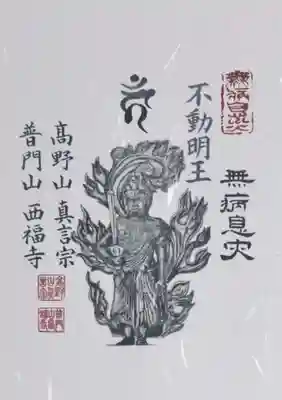 無病息災
不動明王
高野山 真言宗
普門山 西福寺